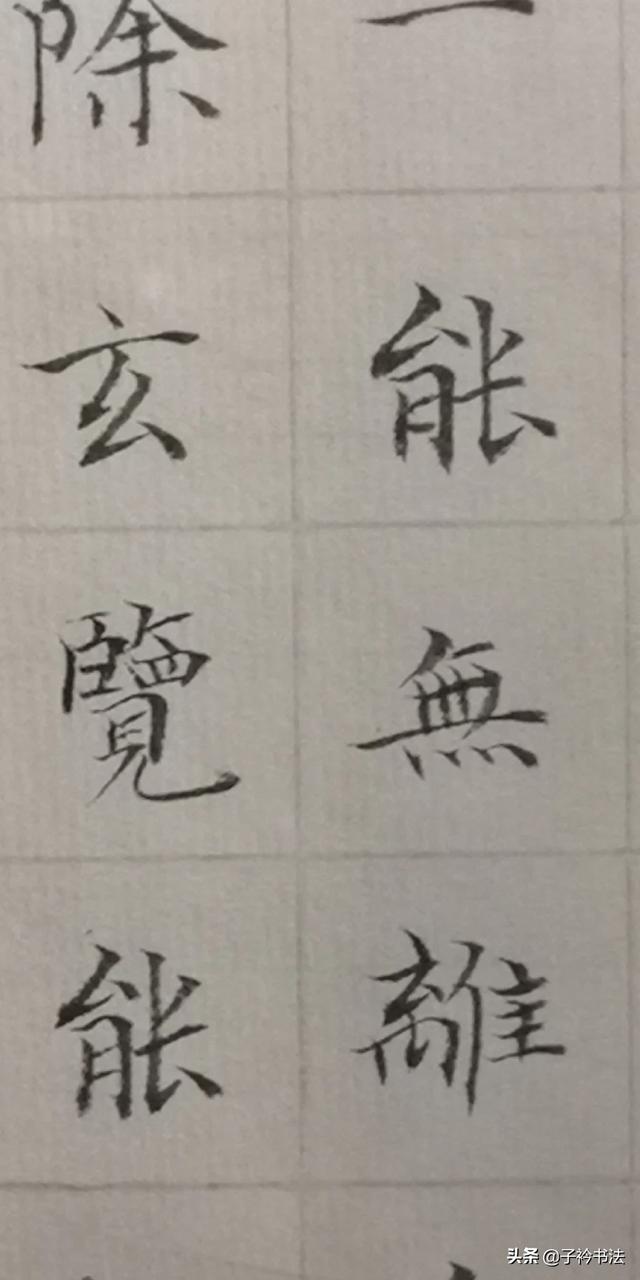 一能無離
除玄覽能
头条 @子衿书法